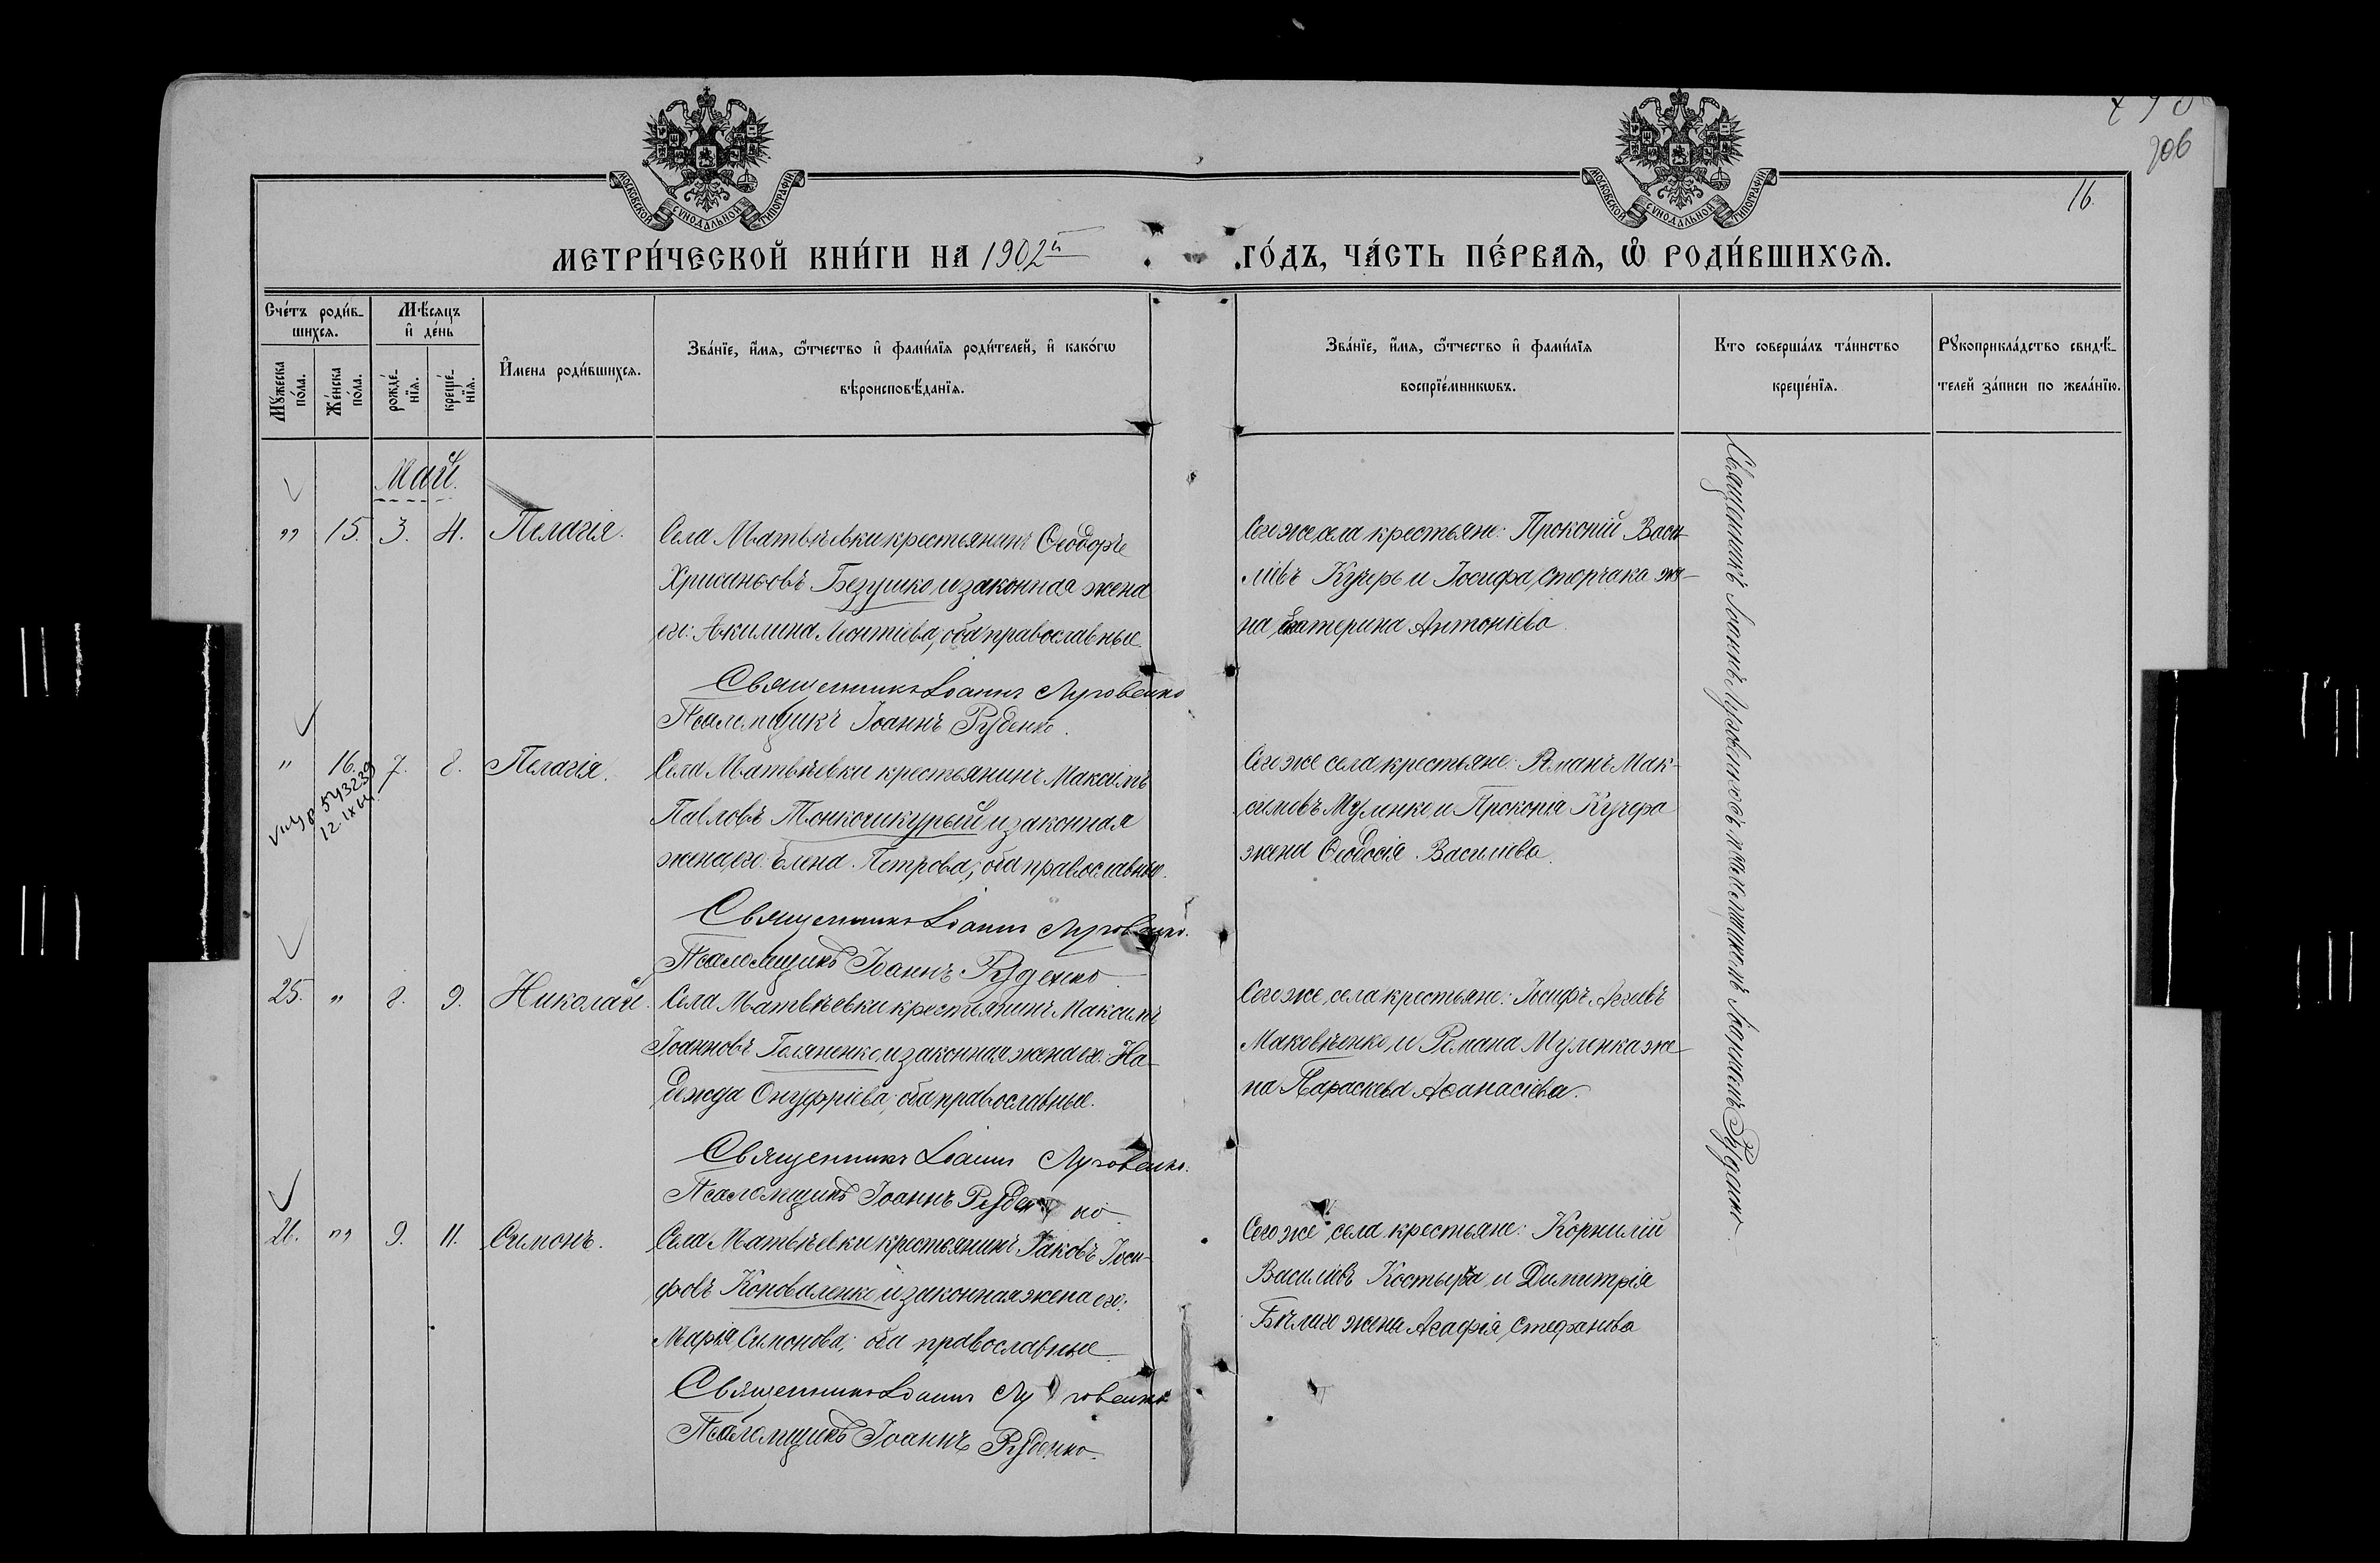 498
206
16.
МОСКОВСКОЙ СѴНОДАЛЬНОЙ ТИПОГРАФІИ
МОСКОВСКОЙ СѴНОДАЛЬНОЙ ТИПОГРАФІИ
МЕТРИ́ЧЕСКОЙ КНИ́ГИ НА 1902й ГО́ДЪ, ЧА́СТЬ ПЕ́РВАѦ, Ѡ҆ РОДИ́ВШИХСѦ.
Сче́тъ роди́в-
шихсѧ.
Мꙋ́жеска
по́ла.
Же́нска
по́ла.
Мѣ́сѧцъ
и҆ де́нь
рожде́-
нїѧ.
креще́-
нїѧ.
И҆мена роди́вшихсѧ.
Зва́нїе, и҆́мѧ, ѻ҆́тчество и҆ фами́лїѧ роди́телей, и҆ како́гѡ
вѣроисповѣ́данїѧ.
Зва́нїе, и҆́мѧ, ѻ҆́тчество и҆ фами́лїѧ
воспрїе́мникѡвъ.
Кто соверша́лъ та́инство
креще́нїѧ.
Рꙋкоприкла́дство свидѣ́-
телей за́писи по жела́нїю.
Май.
" 15. 3. 4. Пелагія.
Села Матвѣевки крестьянинъ Ѳеодоръ
Хрисанѳовъ Безушко и законная жена
его: Акилина Леонтіева, оба православные.
Священникъ Іоаннъ Луговенко
Псаломщикъ Іоаннъ Руденко.
Сего же села крестьяне: Прокопій Васи-
ліевъ Кучеръ и Іосифа Сторчака же-
на Екатерина Антоніева.
" 16. 7. 8. Пелагія.
543239
12.IX64.
Села Матвѣевки крестьянинъ Максимъ
Павловъ Тонкошкурый и законная
жена его: Елена Петрова; оба православные.
Священникъ Іоаннъ Луговенко.
Псаломщикъ Іоаннъ Руденко
Сего же села крестьяне: Романъ Мак-
симовъ Муленко и Прокопія Кучера
жена Ѳеодосія Василіева.
25. " 8. 9. Николай.
Села Матвѣевки крестьянинъ Максимъ
Іоанновъ Голяненко и законная жена его: На-
дежда Онуфріева; оба православные.
Священникъ Іоаннъ Луговенко.
Псаломщикъ Іоаннъ Руденко.
Сего же села крестьяне: Іосифъ Аггеевъ
Маковѣенко и Романа Муленка же-
на Параскева Аѳанасіева.
26. " 9. 11. Симонъ.
Села Матвѣевки крестьянинъ Іаковъ Іоси-
фовъ Коноваленко и законная жена его:
Марія Симонова; оба православные.
Священникъ Іоаннъ Луговенко
Псаломщикъ Іоаннъ Руденко.
Сего же села крестьяне: Корнилій
Василіевъ Костыра и Димитрія
Бѣлаго жена Агафія Стефанова
Священникъ Іоаннъ Луговенко съ псаломщикомъ Іоанномъ Руденко.